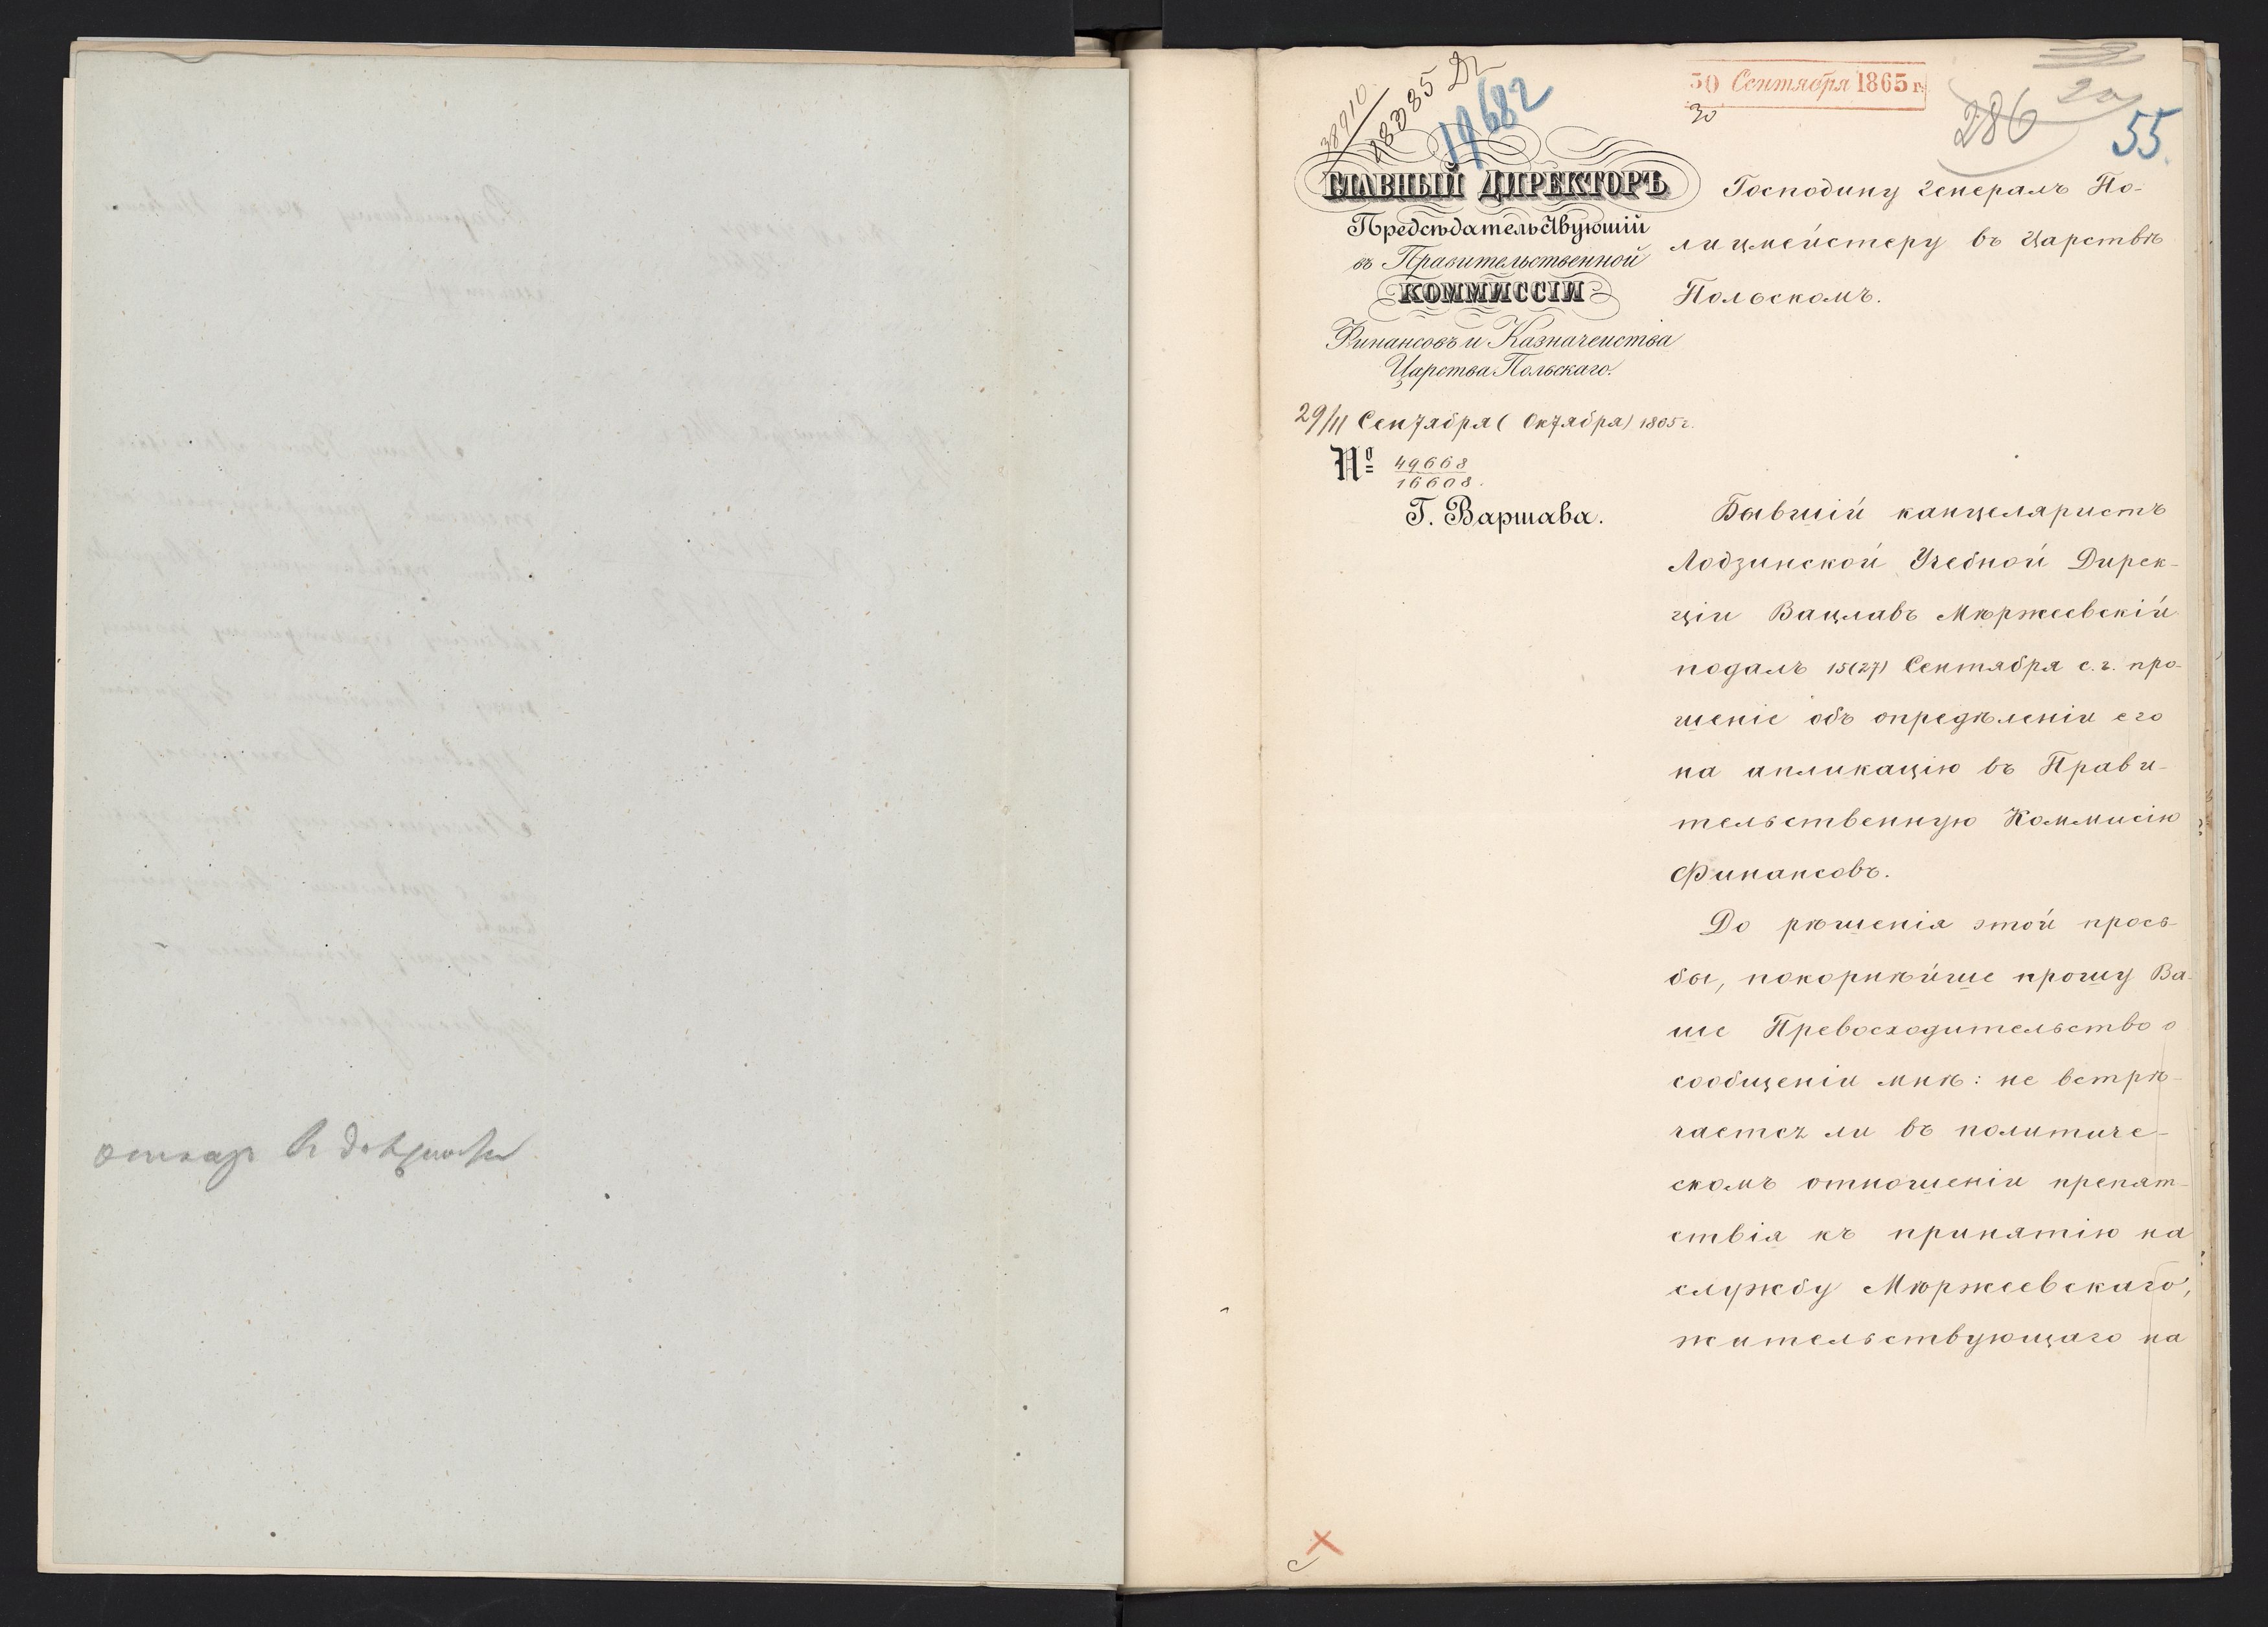 38910
19682
30 Сентября 1865 г.
30
286
20
55.
ГЛАВНЫЙ ДИРЕКТОРЪ
Предсѣдательствующій
въ Правительственной
КОММИССІИ
Финансовъ и Казначейства
Царства Польскаго.
29/11 Сентября (Октября) 1865 г.
№ 49668
16608.
Г. Варшава.
Господину Генералъ По-
лицмейстеру въ Царствѣ
Польскомъ.
Бывшій канцеляристъ
Лодзинской Учебной Дирек-
ціи Вацлавъ Мѣржеевскій
подалъ 15(27) Сентября с. г. про-
шеніе объ опредѣленіи его
на апликацію въ Прави-
тельственную Коммисію
Финансовъ.
До рѣшенія этой прось-
бы, покорнѣйше прошу Ва-
ше Превосходительство о
сообщеніи мнѣ: не встрѣ-
чается ли въ политиче-
скомъ отношеніи препят-
ствія къ принятію на
службу Мѣржеевскаго,
жительствующаго на